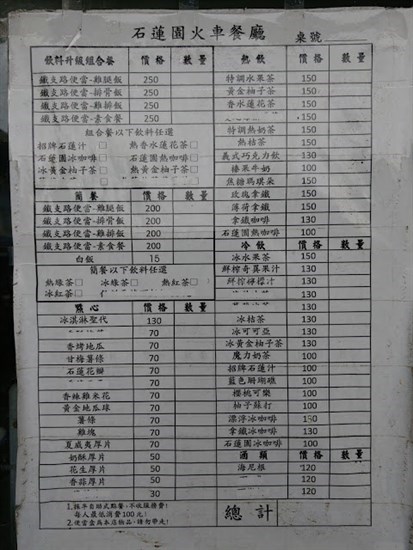 石蓮園火車餐廳 桌號
飲料升級組合餐 價格 數量
鐵支路便當-雞腿飯 250
鐵支路便當-排骨飯 250
鐵支路便當-雞排飯 250
鐵支路便當-素食餐 250
組合餐以下飲料任選
招牌石蓮汁□ 熱香水蓮花茶□
石蓮園冰咖啡□ 石蓮園熱咖啡□
冰黃金柚子茶□ 熱黃金柚子茶□
簡餐 價格 數量
鐵支路便當-雞腿飯 200
鐵支路便當-排骨飯 200
鐵支路便當-雞排飯 200
鐵支路便當-素食餐 200
白飯 15
簡餐以下飲料任選
熱綠茶□ 冰綠茶□ 熱紅茶□
冰紅茶□
點心 價格 數量
冰淇淋聖代 130
70
香烤地瓜 70
甘梅薯條 70
石蓮花瓣 70
70
香辣雞米花 70
黃金地瓜球 70
薯條 70
雞塊 70
夏威夷厚片 70
奶酥厚片 50
花生厚片 50
香蒜厚片 50
30
1.採半自助式點餐,不收服務費!
每人最低消費100元!
2.便當盒為本店物品,請勿帶走!
熱飲 價格 數量
特調水果茶 150
黃金柚子茶 150
香水蓮花茶 150
150
特調熱奶茶 150
熱桔茶 150
義式巧克力飲 130
榛果牛奶 100
焦糖瑪琪朵 150
玫瑰拿鐵 150
薄荷拿鐵 150
拿鐵咖啡 130
石蓮園熱咖啡 100
冷飲 價格 數量
冰水果茶 150
鮮榨奇異果汁 130
鮮榨檸檬汁 130
130
冰桔茶 130
冰可可亞 130
冰黃金柚子茶 130
魔力奶茶 100
招牌石蓮汁 100
藍色珊瑚礁 100
櫻桃可樂 100
柚子蘇打 100
漂浮冰咖啡 150
拿鐵冰咖啡 130
石蓮園冰咖啡 100
酒類 價格 數量
海尼根 120
120
總計